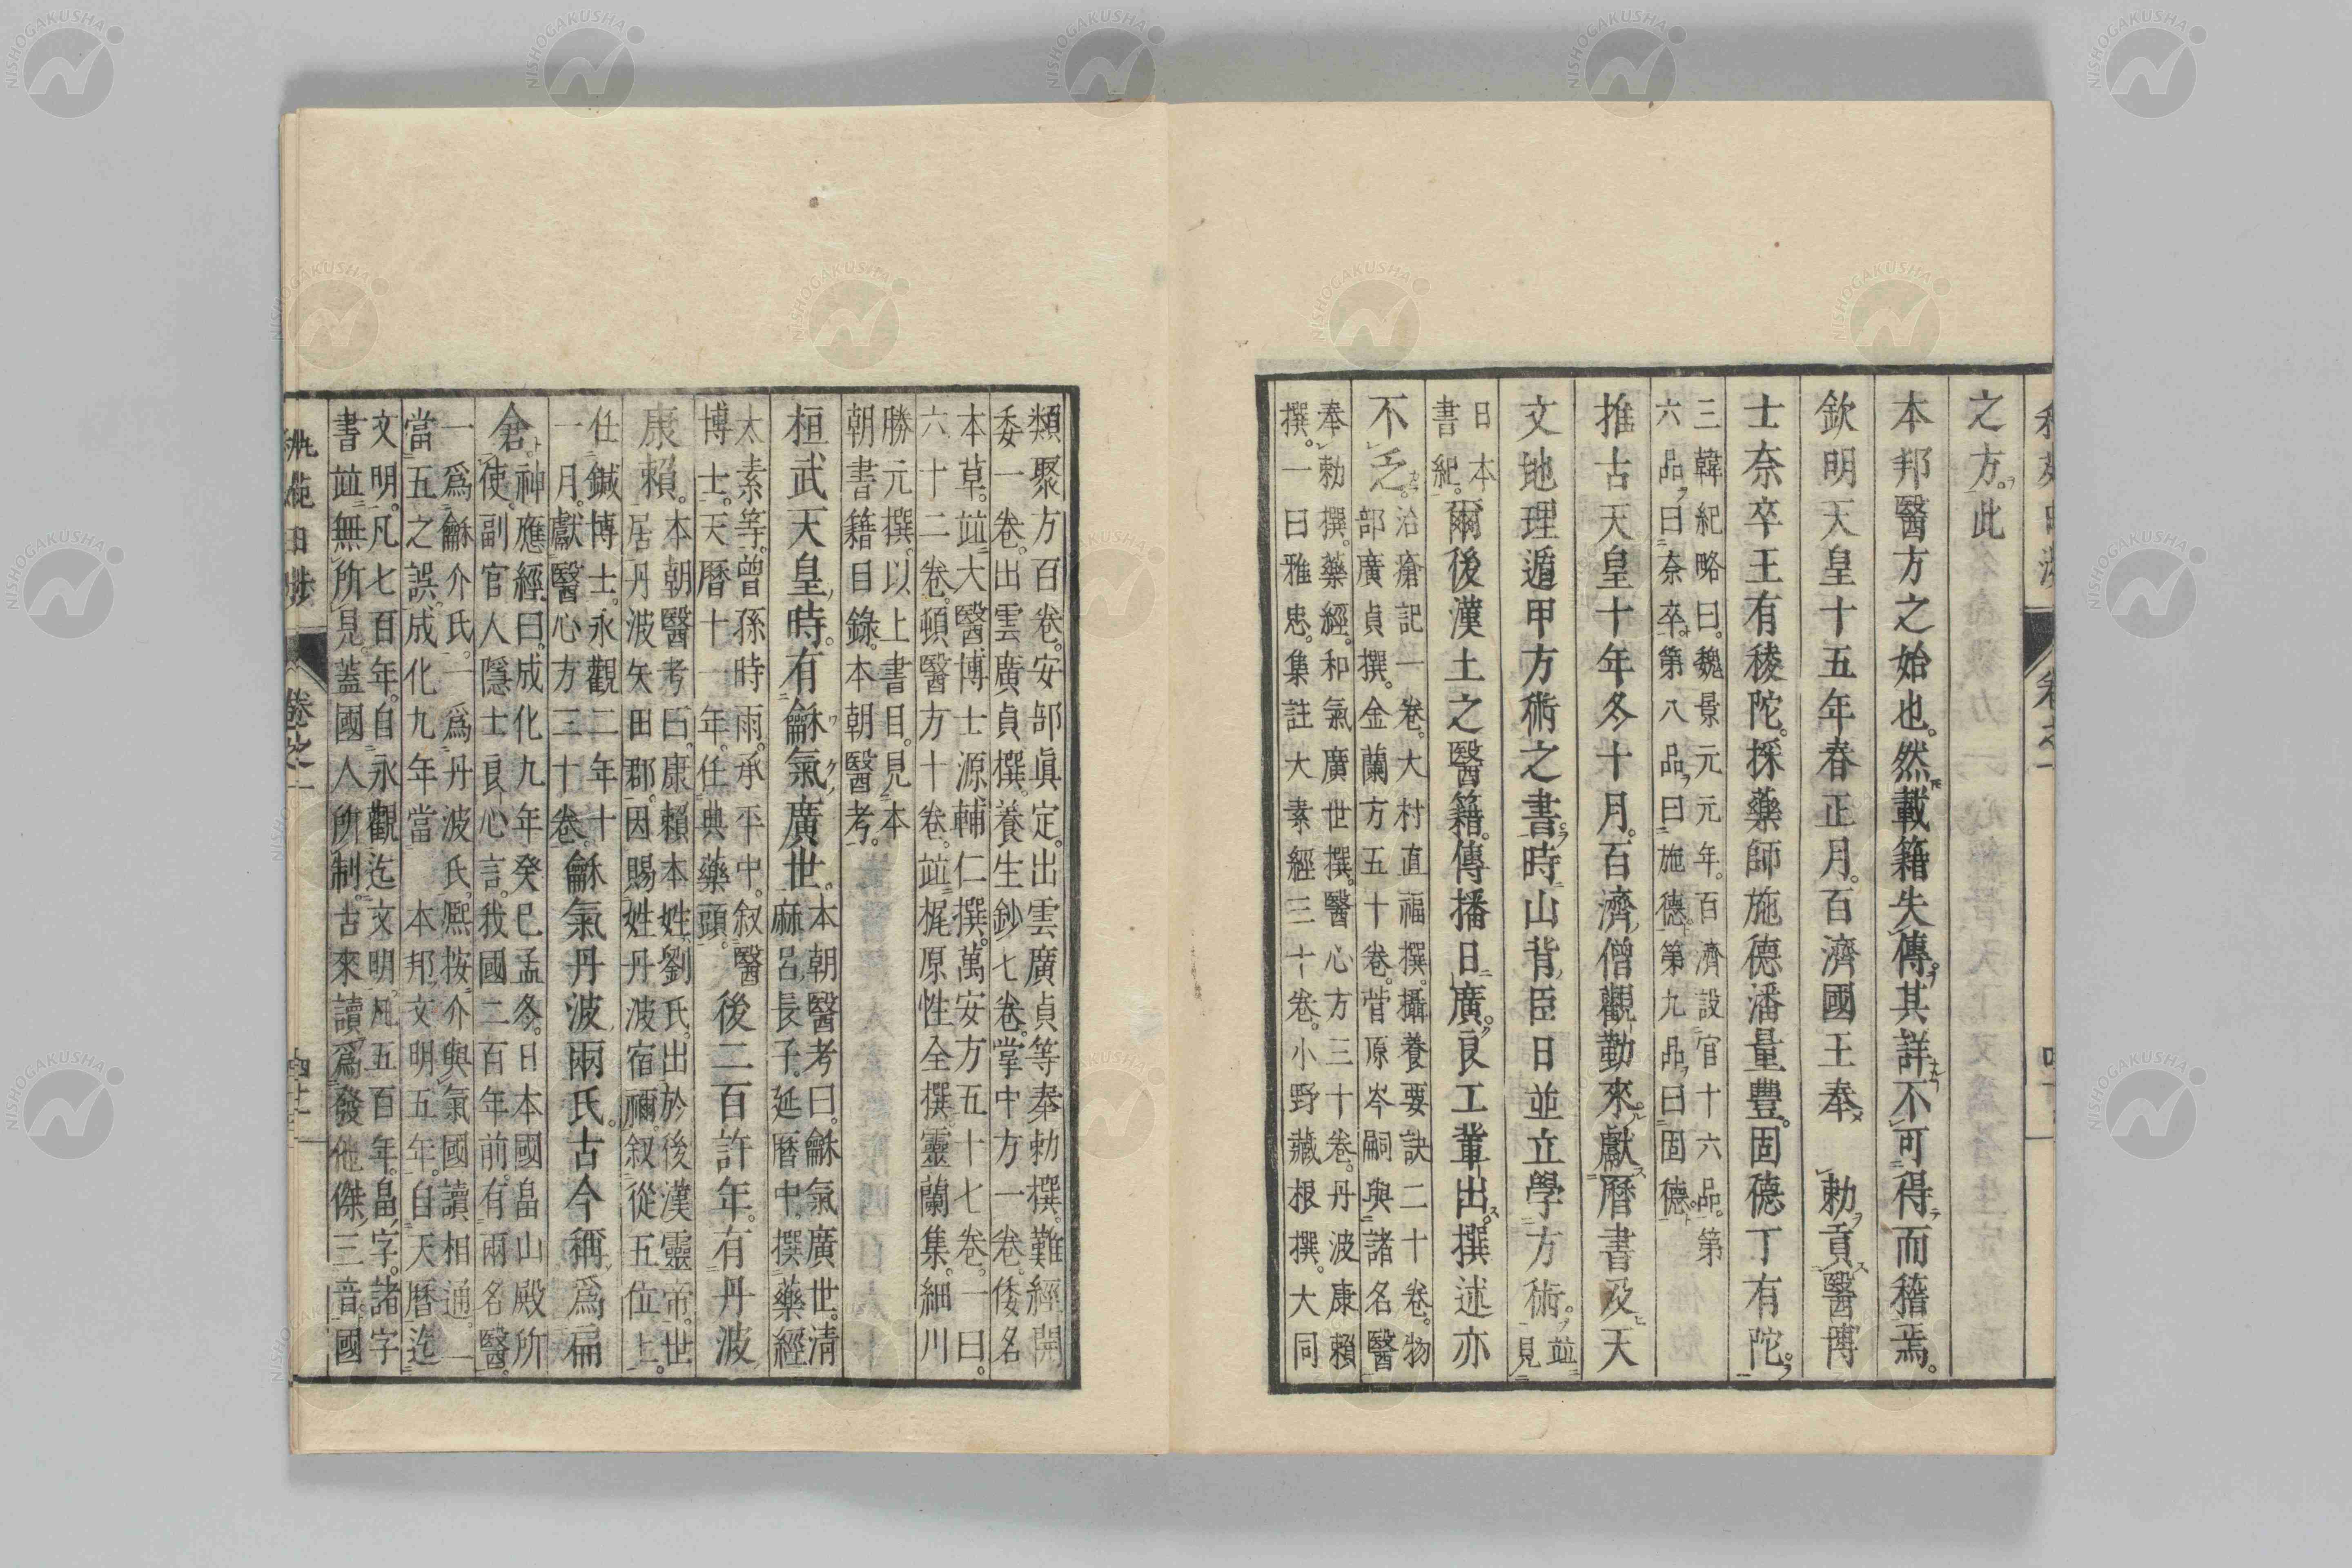 之方。此
本邦醫方之始也。然載籍失傳。其詳不可得而稽焉。
欽明天皇十五年春正月。百濟國王奉 勅貢醫博
士奈卒王有㥄陀。採藥師施德潘量豊。固德丁有陀。
三韓紀略曰。魏景元元年。百濟設官十六品。第
六品曰奈卒。第八品曰施德。第九品曰固德。
推古天皇十年冬十月。百濟僧觀勤來。獻曆書及天
文地理遁甲方術之書。時山背臣日並立學方術。並見
日本
書紀。爾後漢土之醫籍。傳播日廣。良工輩出。撰述亦
不乏。治瘡記一卷。大村直福撰。攝養要訣二十卷。物
部廣貞撰。金蘭方五十卷。菅原岑嗣與諸名醫
奉勅撰。藥經。和氣廣世撰。醫心方三十卷。丹波康賴
撰。一曰雅忠。集註大素經三十卷。小野藏根撰。大同
類聚方百卷。安部眞定。出雲廣貞等奉勅撰。難經開
委一卷。出雲廣貞撰。養生鈔七卷。掌中方一卷。倭名
本草。並大醫博士源輔仁撰。萬安方五十七卷。一曰。
六十二卷。頓醫方十卷。並梶原性全撰。靈蘭集。細川
勝元撰。以上書目。見本
朝書籍目錄。本朝醫考。
桓武天皇時。有龢氣廣世。本朝醫考曰。龢氣廣世。清
麻呂長子。延曆中。撰藥經
太素等。曾孫時雨。承平中。叙醫
博士。天曆十一年。任典藥頭。後二百許年。有丹波
康賴。本朝醫考曰。康賴本姓劉氏。出於後漢靈帝。世
居丹波矢田郡。因賜姓丹波宿禰。叙從五位上。
任鍼博士。永觀二年十
一月。獻醫心方三十卷。龢氣丹波兩氏。古今稱爲扁
倉。神應經曰。成化九年癸巳孟冬。日本國畠山殿所
使。副官人隱士良心言。我國二百年前。有兩名醫。
一爲龢介氏。一爲丹波氏。熙按。介與氣國讀相通。一
當五之誤。成化九年當 本邦文明五年。自天曆迄
文明。凡七百年。自永觀迄文明。凡五百年。畠字。諸字
書並無所見。蓋國人所制。古來讀爲發他傑三音。國